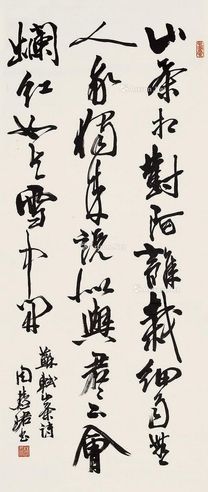 山茶相對阿誰栽細雨無
人我獨來說似與君々不會
爛紅如火雪中開
蘇軾山茶詩
周慧珺書